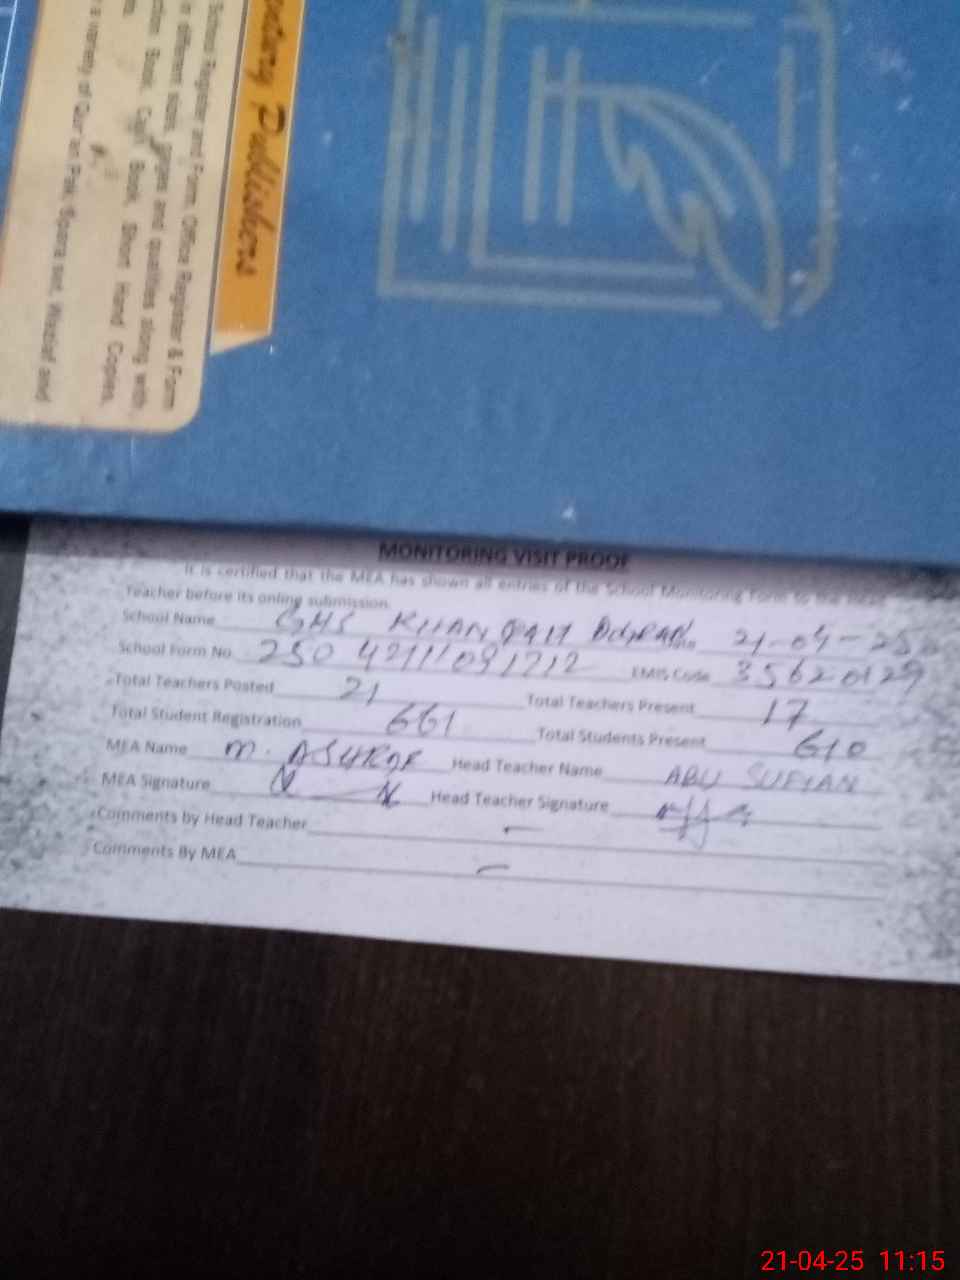 School Register and Form, Office Register & Form
in different sizes, and qualities along with
Book, Cash Book, Short Hand Copies,
a variety of Qur'an Pak, Sipara set, Wazaif and
Publishers
MONITORING VISIT PROOF
It is certified that the MEA has shown all entries of the School Monitoring Form to the Head
Teacher before its online submission.
School Name GHS KHAN Date 21-04-25
School Form No. 250 42111091712 EMIS Code 35620129
Total Teachers Posted 21 Total Teachers Present 17
Total Student Registration 661 Total Students Present 610
MEA Name M. ASHRAF Head Teacher Name ABU SUFIAN
MEA Signature Head Teacher Signature
Comments by Head Teacher —
Comments By MEA —
21-04-25 11:15